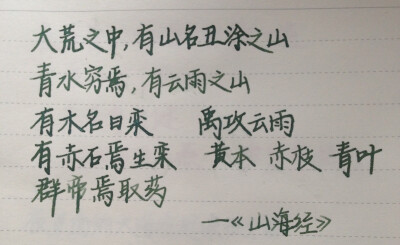 大荒之中,有山名丑涂之山
青水穷焉,有云雨之山
有木名曰栾 禹攻云雨
有赤石焉生栾 黄本 赤枝 青叶
群帝焉取药
—《山海经》